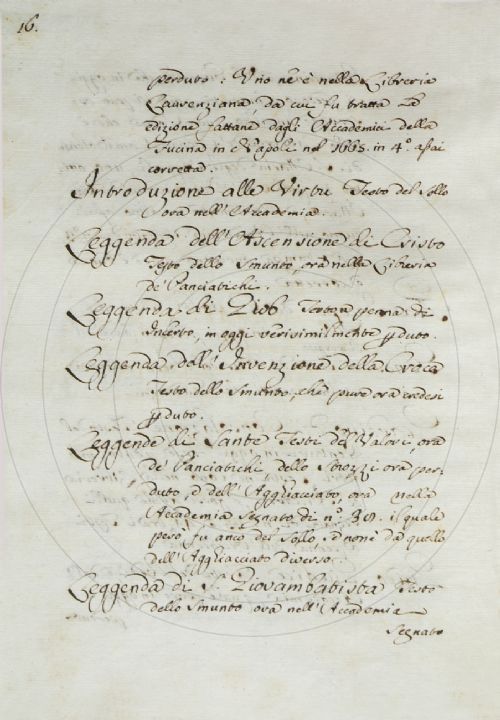 16.
perduto: Uno ne è nella Libreria
Laurenziana, da cui fu tratta la
edizione fattane dagli Accademici della
Fucina in Napoli nel 1665. in 4.° assai
corretta.
Introduzione alle Virtù Testo del Sollo
ora nell'Accademia.
Leggenda dell'Ascensione di Cristo
Testo dello Smunto, ora nella Libreria
de' Panciatichi.
Leggenda di Giob Testo a penna di
Incerto, in oggi verisimilmente pduto.
Leggenda dell'Invenzione della Croce
Testo dello Smunto, che pure ora credesi
pduto.
Leggende di Sante Testi del Valori, ora
de' Panciatichi dello Strozzi ora per-
duto, e dell'Agghiacciato, ora nella
Accademia Segnato di n.° il quale
però fu anco del Sollo, e non è da quello
dell'Agghiacciato diverso.
Leggenda di S. Giovambatista Testo
dello Smunto ora nell'Accademia
Segnato